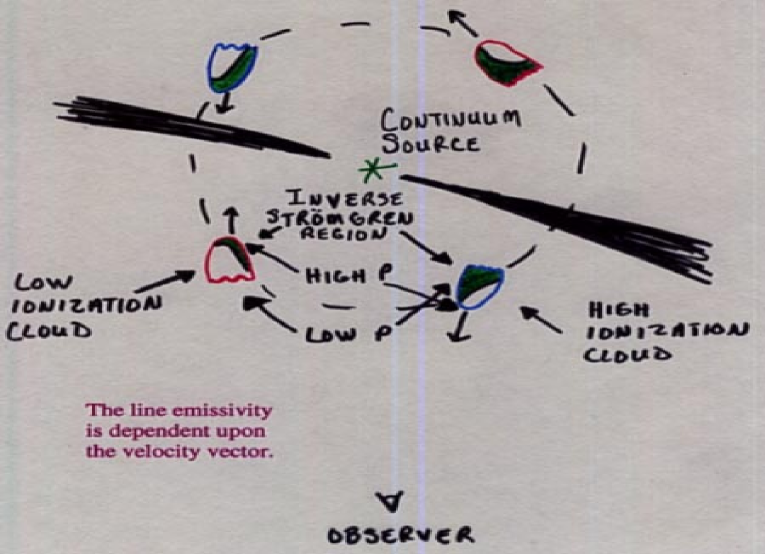 CONTINUUM
SOURCE
INVERSE
STRÖMGREN
REGION
HIGH P
LOW
IONIZATION
CLOUD
LOW P
HIGH
IONIZATION
CLOUD
The line emissivity
is dependent upon
the velocity vector.
OBSERVER